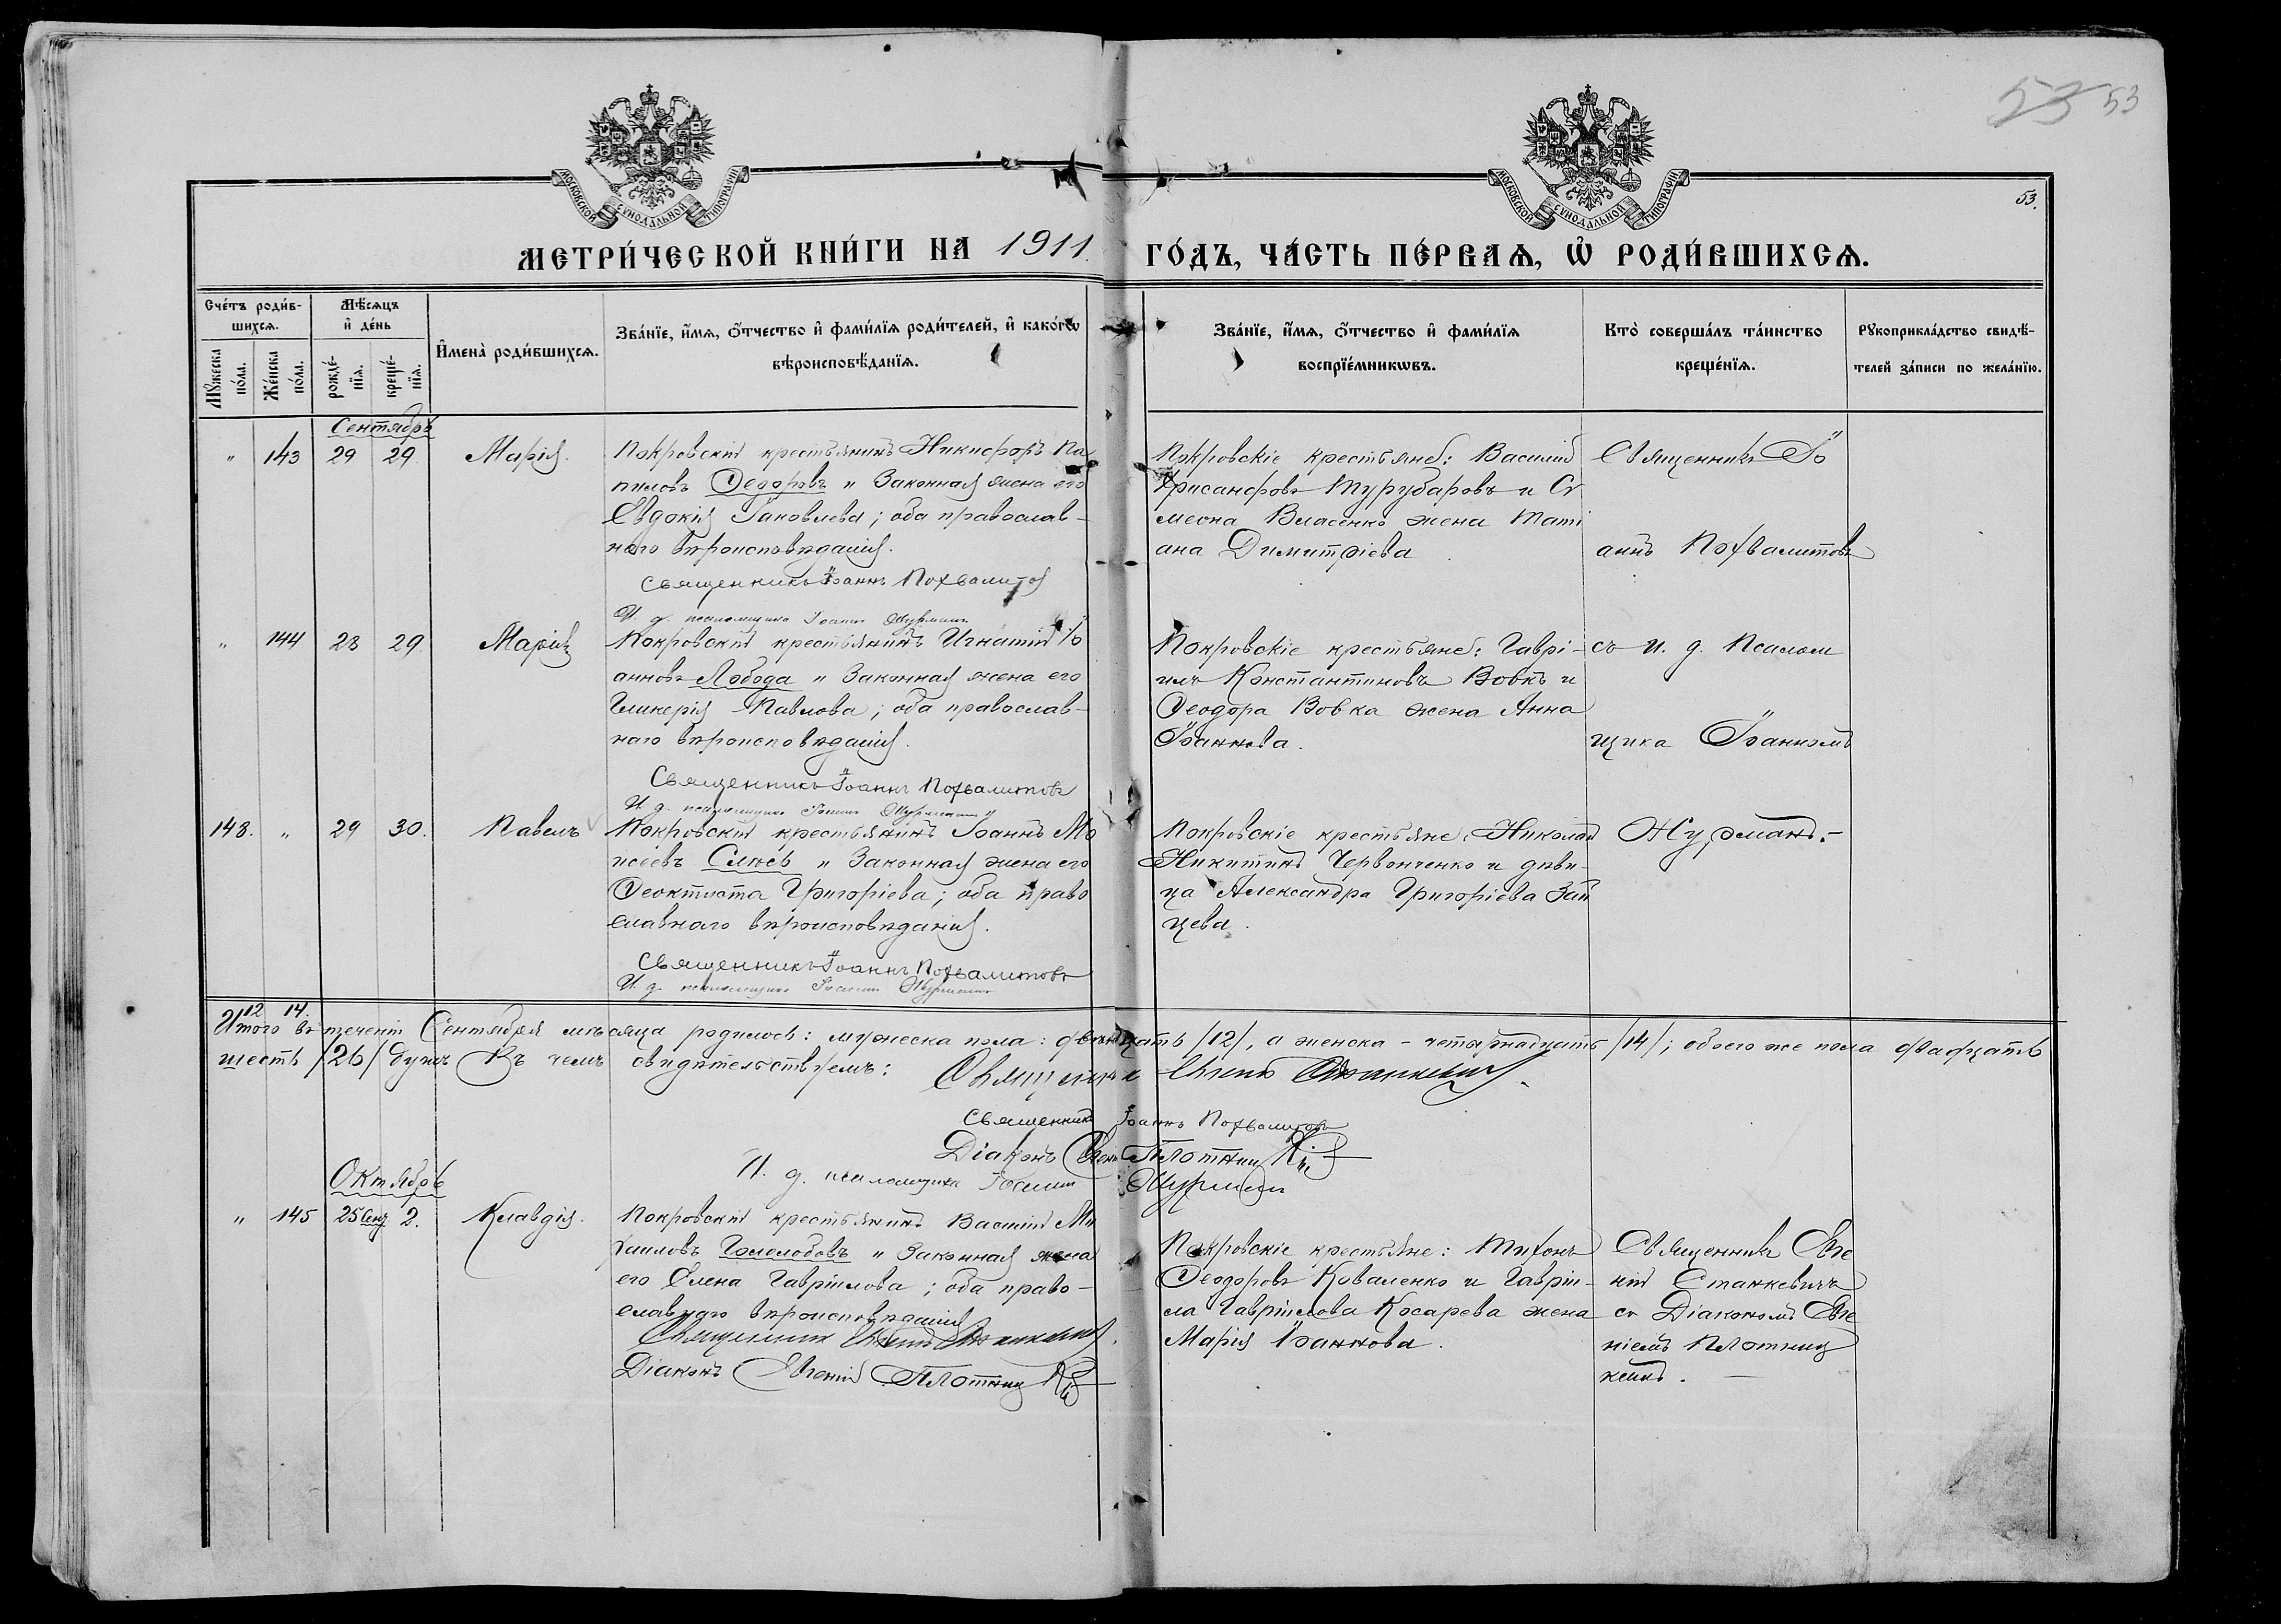 53 53
МОСКОВСКОЙ СѴНОДАЛЬНОЙ ТИПОГРАФІИ
МОСКОВСКОЙ СѴНОДАЛЬНОЙ ТИПОГРАФІИ
53.
МЕТРИ́ЧЕСКОЙ КНИ́ГИ НА 1911. ГО́ДЪ, ЧА́СТЬ ПЕ́РВАѦ, Ѽ РОДИ́ВШИХСѦ.
Сче́тъ роди́в-
шихсѧ.
Мꙋ́жеска по́ла.
Же́нска по́ла.
Мѣ́сѧцъ и҆ де́нь
рожде́-нїѧ.
креще́-нїѧ.
И҆мена̀ роди́вшихсѧ.
Зва́нїе, и҆́мѧ, ѻ҆́тчество и҆ фами́лїѧ роди́телей, и҆ како́гѡ
вѣроисповѣ́данїѧ.
Зва́нїе, и҆́мѧ, ѻ҆́тчество и҆ фами́лїѧ
воспрїе́мникѡвъ.
Кто̀ соверша́лъ та́инство
креще́нїѧ.
Рꙋкоприкла́дство свидѣ́-
телей за́писи по жела́нїю.
Сентябрь
" 143 29 29. Марія.
Покровскій крестьянинъ Никифоръ Па
пиловъ Ѳедоровъ и законная жена его
Евдокія Іаковлева; оба православ-
наго вѣроисповѣданія.
Священникъ Іоаннъ Похвалитовъ
И. д. псаломщика Іоаннъ Журманъ
Покровскіе крестьяне: Василій
Хрисанфовъ Турубаровъ и Си
меона Власенко жена Тати
ана Димитріева.
Священникъ Іо
аннъ Похвалитовъ
" 144 23 29. Марія
Покровскій крестьянинъ Игнатій Іо
анновъ Лобода и законная жена его
Гликерія Павлова; оба православ-
наго вѣроисповѣданія.
Священникъ Іоаннъ Похвалитовъ
И. д. псаломщика Іоаннъ Журманъ
Покровскіе крестьяне: Гаврі-
илъ Константиновъ Вовкъ и
Ѳеодора Вовка жена Анна
Іоаннова.
съ и. д. Псалом
щика Іоанномъ
148. " 29 30. Павелъ
Покровскій крестьянинъ Іоаннъ Мо
исеевъ Слѣсь и законная жена его
Ѳеоктиста Григоріева; оба право
славнаго вѣроисповѣданія.
Священникъ Іоаннъ Похвалитовъ
И. д. псаломщика Іоаннъ Журманъ
Покровскіе крестьяне: Николай
Никитинъ Червонченко и дѣви-
ца Александра Григоріева Зай
цева.
Журманъ.-
12 14.
Итого въ теченіи Сентября мѣсяца родилось: мужеска пола: двѣнадцать /12/, а женска - четырнадцать /14/; обоего же пола двадцать
шесть /26/ душъ Въ чемъ свидѣтельствуемъ: Священникъ Евгеній Станкевичъ
Священникъ Іоаннъ Похвалитовъ
Діаконъ Евгеній Плотницкій
И. д. псаломщика Іоаннъ Журманъ
Октябрь
" 145 25 Сент. 2. Клавдія.
Покровскій крестьянинъ Василій Ми
хаиловъ Голелобовъ и законная жена
его Елена Гавріилова; оба право-
славнаго вѣроисповѣданія
Священникъ Евгеній Станкевичъ.
Діаконъ Евгеній Плотницкій
Покровскіе крестьяне: Тихонъ
Ѳеодоровъ Коваленко и Гавріи-
ла Гавріилова Косарева жена
Марія Іоаннова.
Священникъ Евге
ній Станкевичъ
съ Діакономъ Евге
ніемъ Плотниц
кимъ.